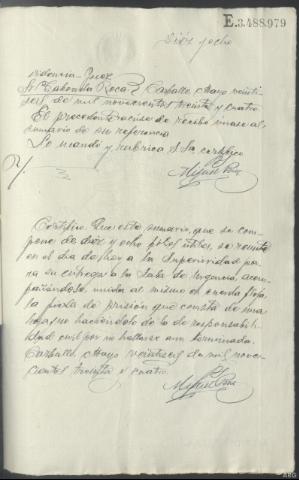 E.3.488.979
Diez y ocho
Providencia Juez
Sr. Taboada Roca Carballo Mayo veinti
seis de mil novecientos treinta y cuatro.
El precedente acuse de recibo unase al
sumario de su referencia
Lo mando y rubrica S.Sa certifico
Certifico: Que este sumario, que se com
pone de diez y ocho folios utiles, se remite
en el dia de hoy a la Superioridad pa
ra su entrega a la Sala de Urgencia, acom
pañandose, unida al mismo el cuerda floja,
la pieza de prisión que consta de una
hoja, no haciendolo de la de responsabili
dad civil por no hallarse aun terminada.
Carballo, Mayo veintiseis de mil nove
cientos treinta y cuatro.